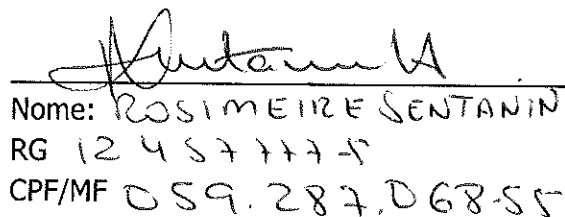 Nome: ROSIMEIRE SENTANIN
RG 12 457777-5
CPF/MF 059.287.068-55